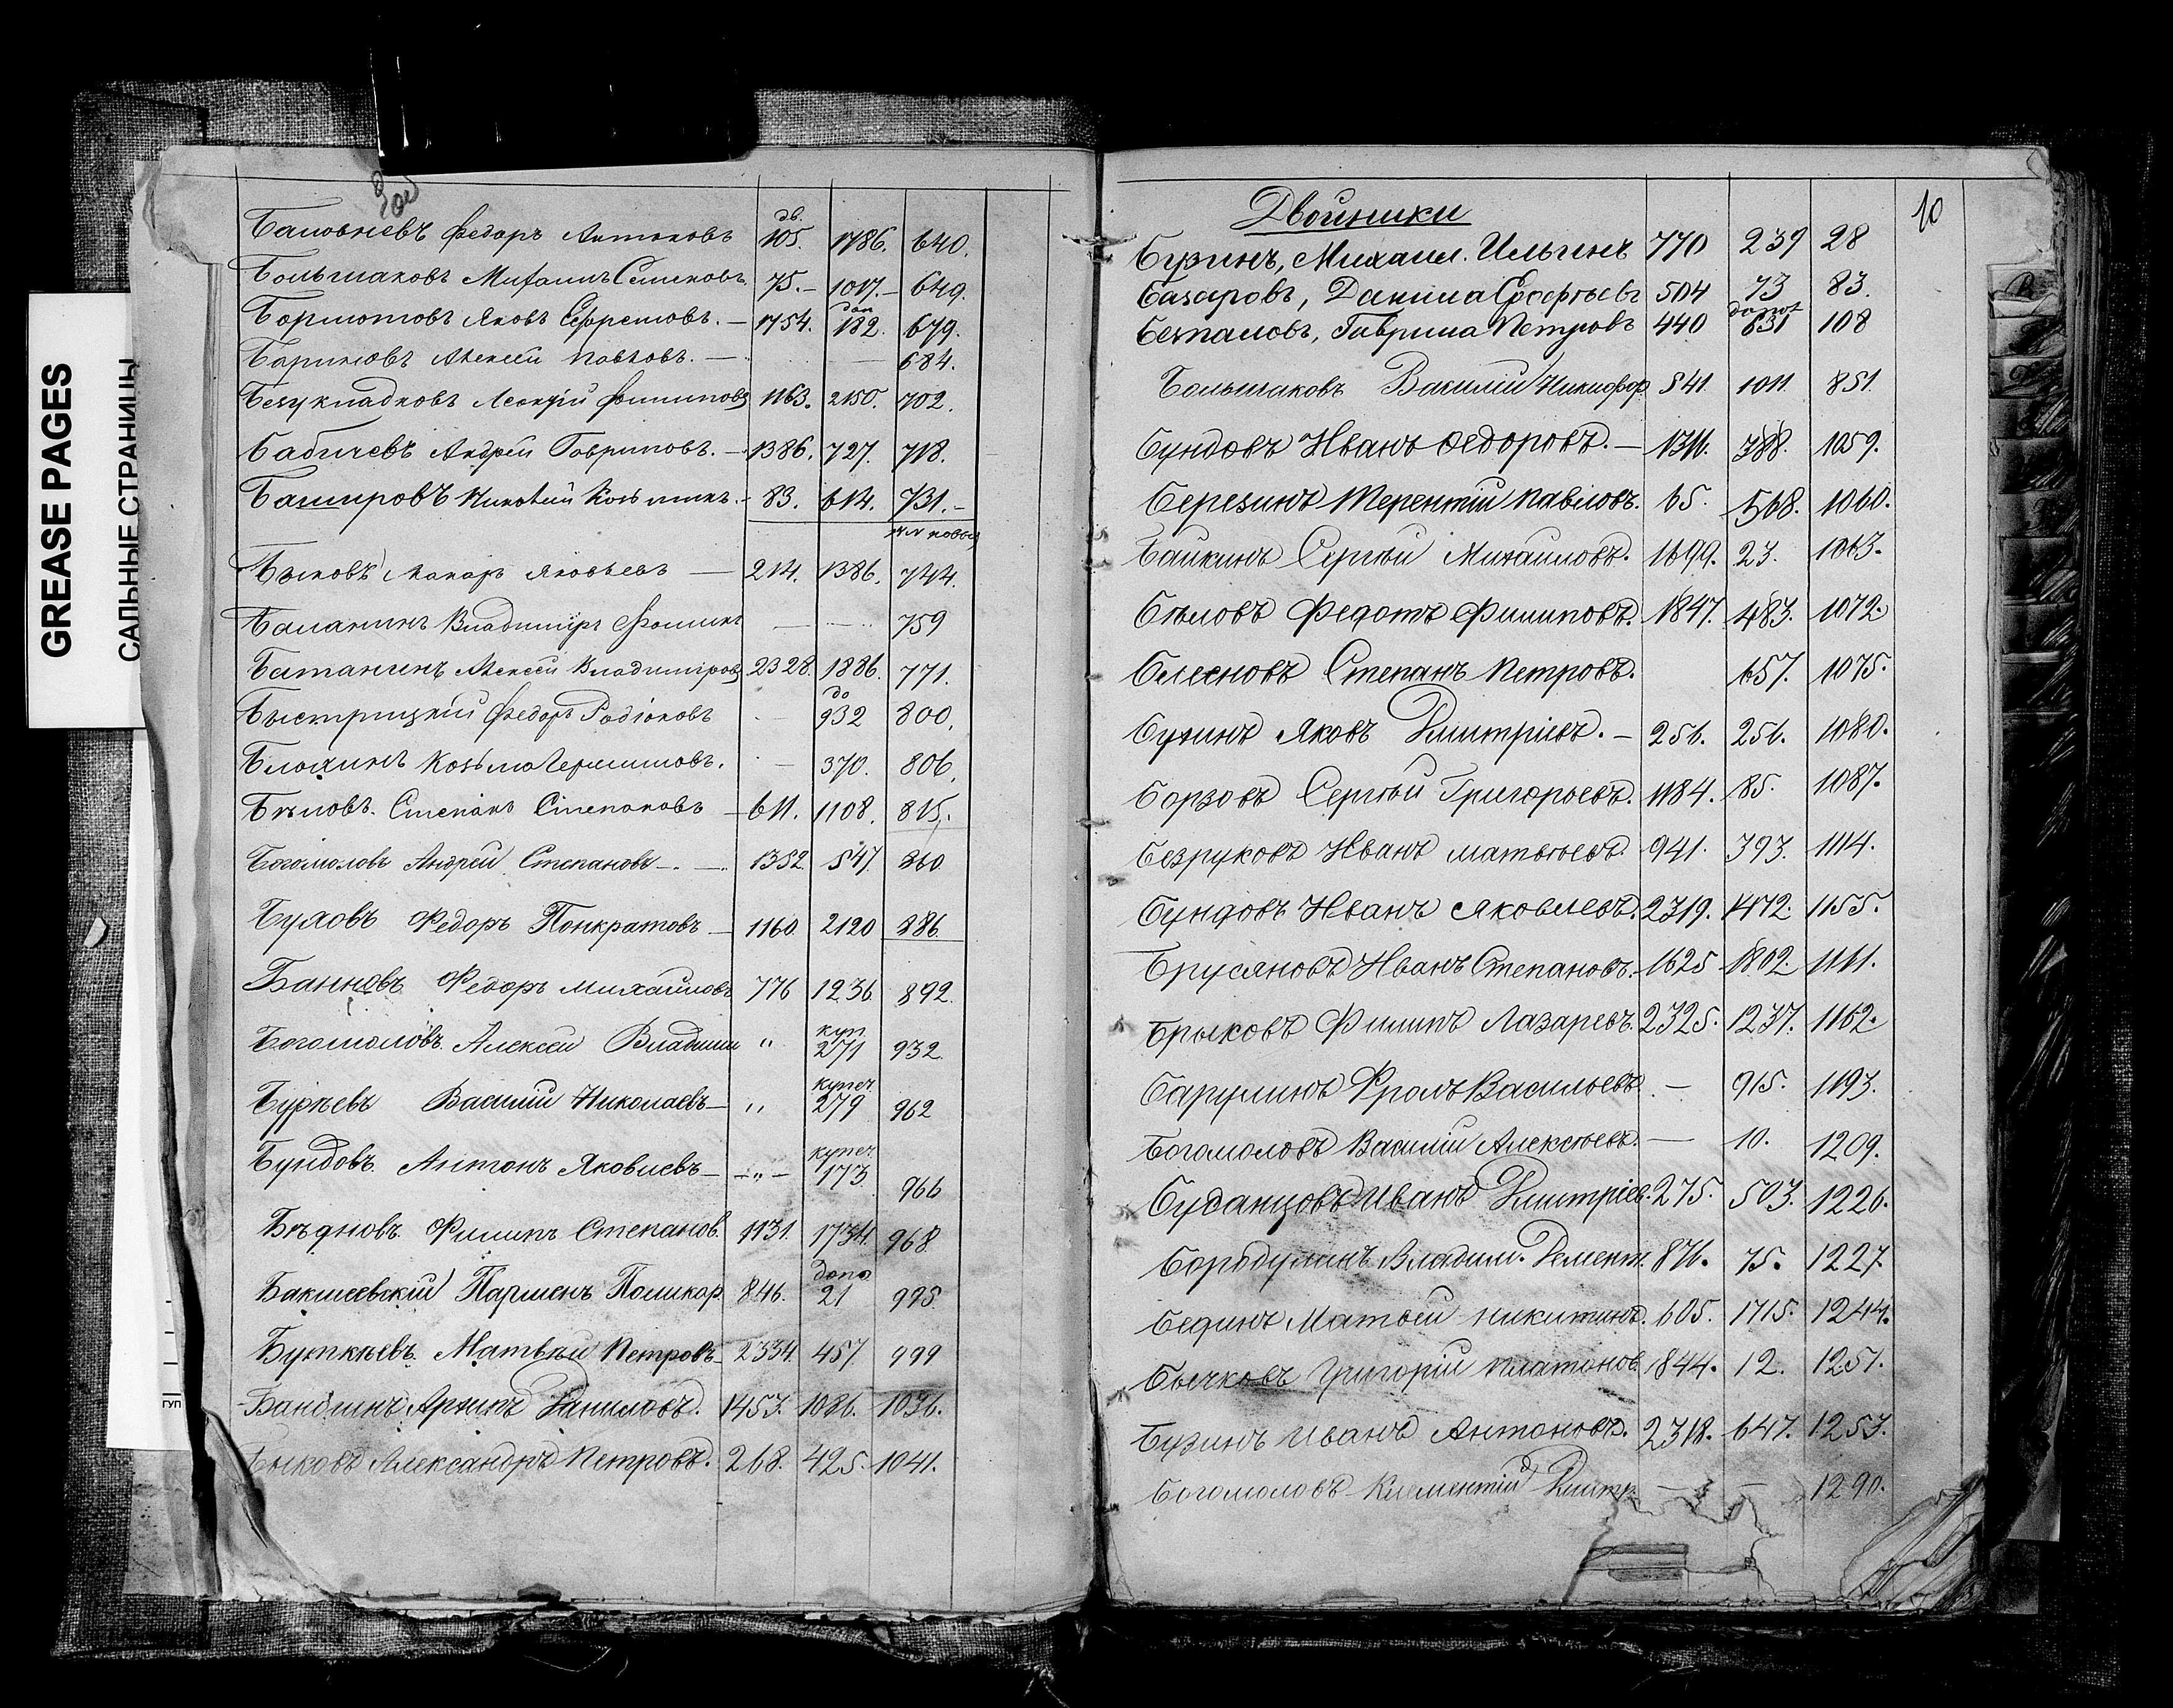 GREASE PAGES
САЛЬНЫЕ СТРАНИЦЫ
дв.
Баловневъ Федоръ Антоновъ 105. 1786. 640.
Большаковъ Михаилъ Семеновъ. 75.– 1017.– 649.
доп
Бормотовъ Яковъ Ефремовъ. – 1754. 182. 679.
Бариновъ Алексей Павловъ. – – 684.
Безукладковъ Леонтій Филиповъ 1163. 2150. 702.
Бабичевъ Андрей Гавриловъ. – 1386. 727. 718.
Башировъ Николай Козьминъ. – 83. 614. 731.–
№№ новые
Быковъ Макаръ Яковлевъ – 214. 1386. 744.
Баланинъ Владиміръ Фоминъ – – 759
Батанинъ Алексей Владиміровъ 2328. 1886. 771.
до
Быстрицкій Федоръ Родіоновъ – 932 800.
Блохинъ Козьма – 370. 806.
Бѣловъ. Степанъ Степановъ – 611. 1108. 815.
Богомоловъ Андрей Степановъ – . – 1352. 547. 860.
Буховъ Федоръ Панкратовъ – 1160. 2120 886.
Банновъ. Федоръ Михайловъ 776 1236 892.
куп
Богомоловъ. Алексей Владими " 271 932.
купеч
Бурѣевъ Василій Николаевъ – " 279 962
купеч
Бундовъ. Антонъ Яковлевъ – – " – 173 966
Бѣдновъ. Филипъ Степанов. 1131. 1734. 968.
допо
Бакшеевскій Парменъ Поликар. 846. 21 995.
Буткѣевъ. Матвѣй Петровъ – 2334. 457. 999
Бандинъ Архипъ Даниловъ. 1453. 1086. 1036.
Быковъ Александръ Петровъ. 268. 425. 1041.
10
Двойники
Бузинъ, Михаил. Ильинъ 770 239 28
Базаровъ, Данила 504 73 83.
допол
Безпаловъ, Гаврила Петровъ 440 631 108
Большаковъ Василій Никифор. 541. 1011. 851.
Бундовъ Иванъ Федоровъ. – 1311. 388. 1059.
Березинъ Терентій Павловъ. 65. 568. 1060.
Байкинъ Сергѣй Михайловъ. 1699. 23. 1063.
Бѣловъ Федотъ Филиповъ. 1847. 483. 1072.
Блесновъ Степанъ Петровъ. 657. 1075.
Бузинъ Яковъ Дмитріевъ. – 256. 256. 1080.
Борзовъ Сергѣй Григорьевъ. 1184. 85. 1087.
Безруковъ Иванъ Матвѣевъ. 941. 393. 1114.
Бундовъ Иванъ Яковлевъ. 2319. 1472. 1155.
Брусяновъ Иванъ Степановъ. 1625 1802. 1161.
Брыковъ Филипъ Лазаревъ. 2325. 1237. 1162.
Барулинъ Фролъ Васильевъ. – 915. 1193.
Богомоловъ Василій Алексѣевъ. – 10. 1209.
Буданцовъ Иванъ Дмитріев. 275. 503. 1226.
Борбдулинъ Владим. Демент. 876. 75. 1227
Бединъ Матвѣй Никитинъ. 605. 1715. 1244.
Бычковъ Григорій Платонов. 1844. 12. 1251.
Бузинъ Иванъ Антоновъ. 2318. 647. 1253.
Богомоловъ Климентій Дмитр. – – 1290.